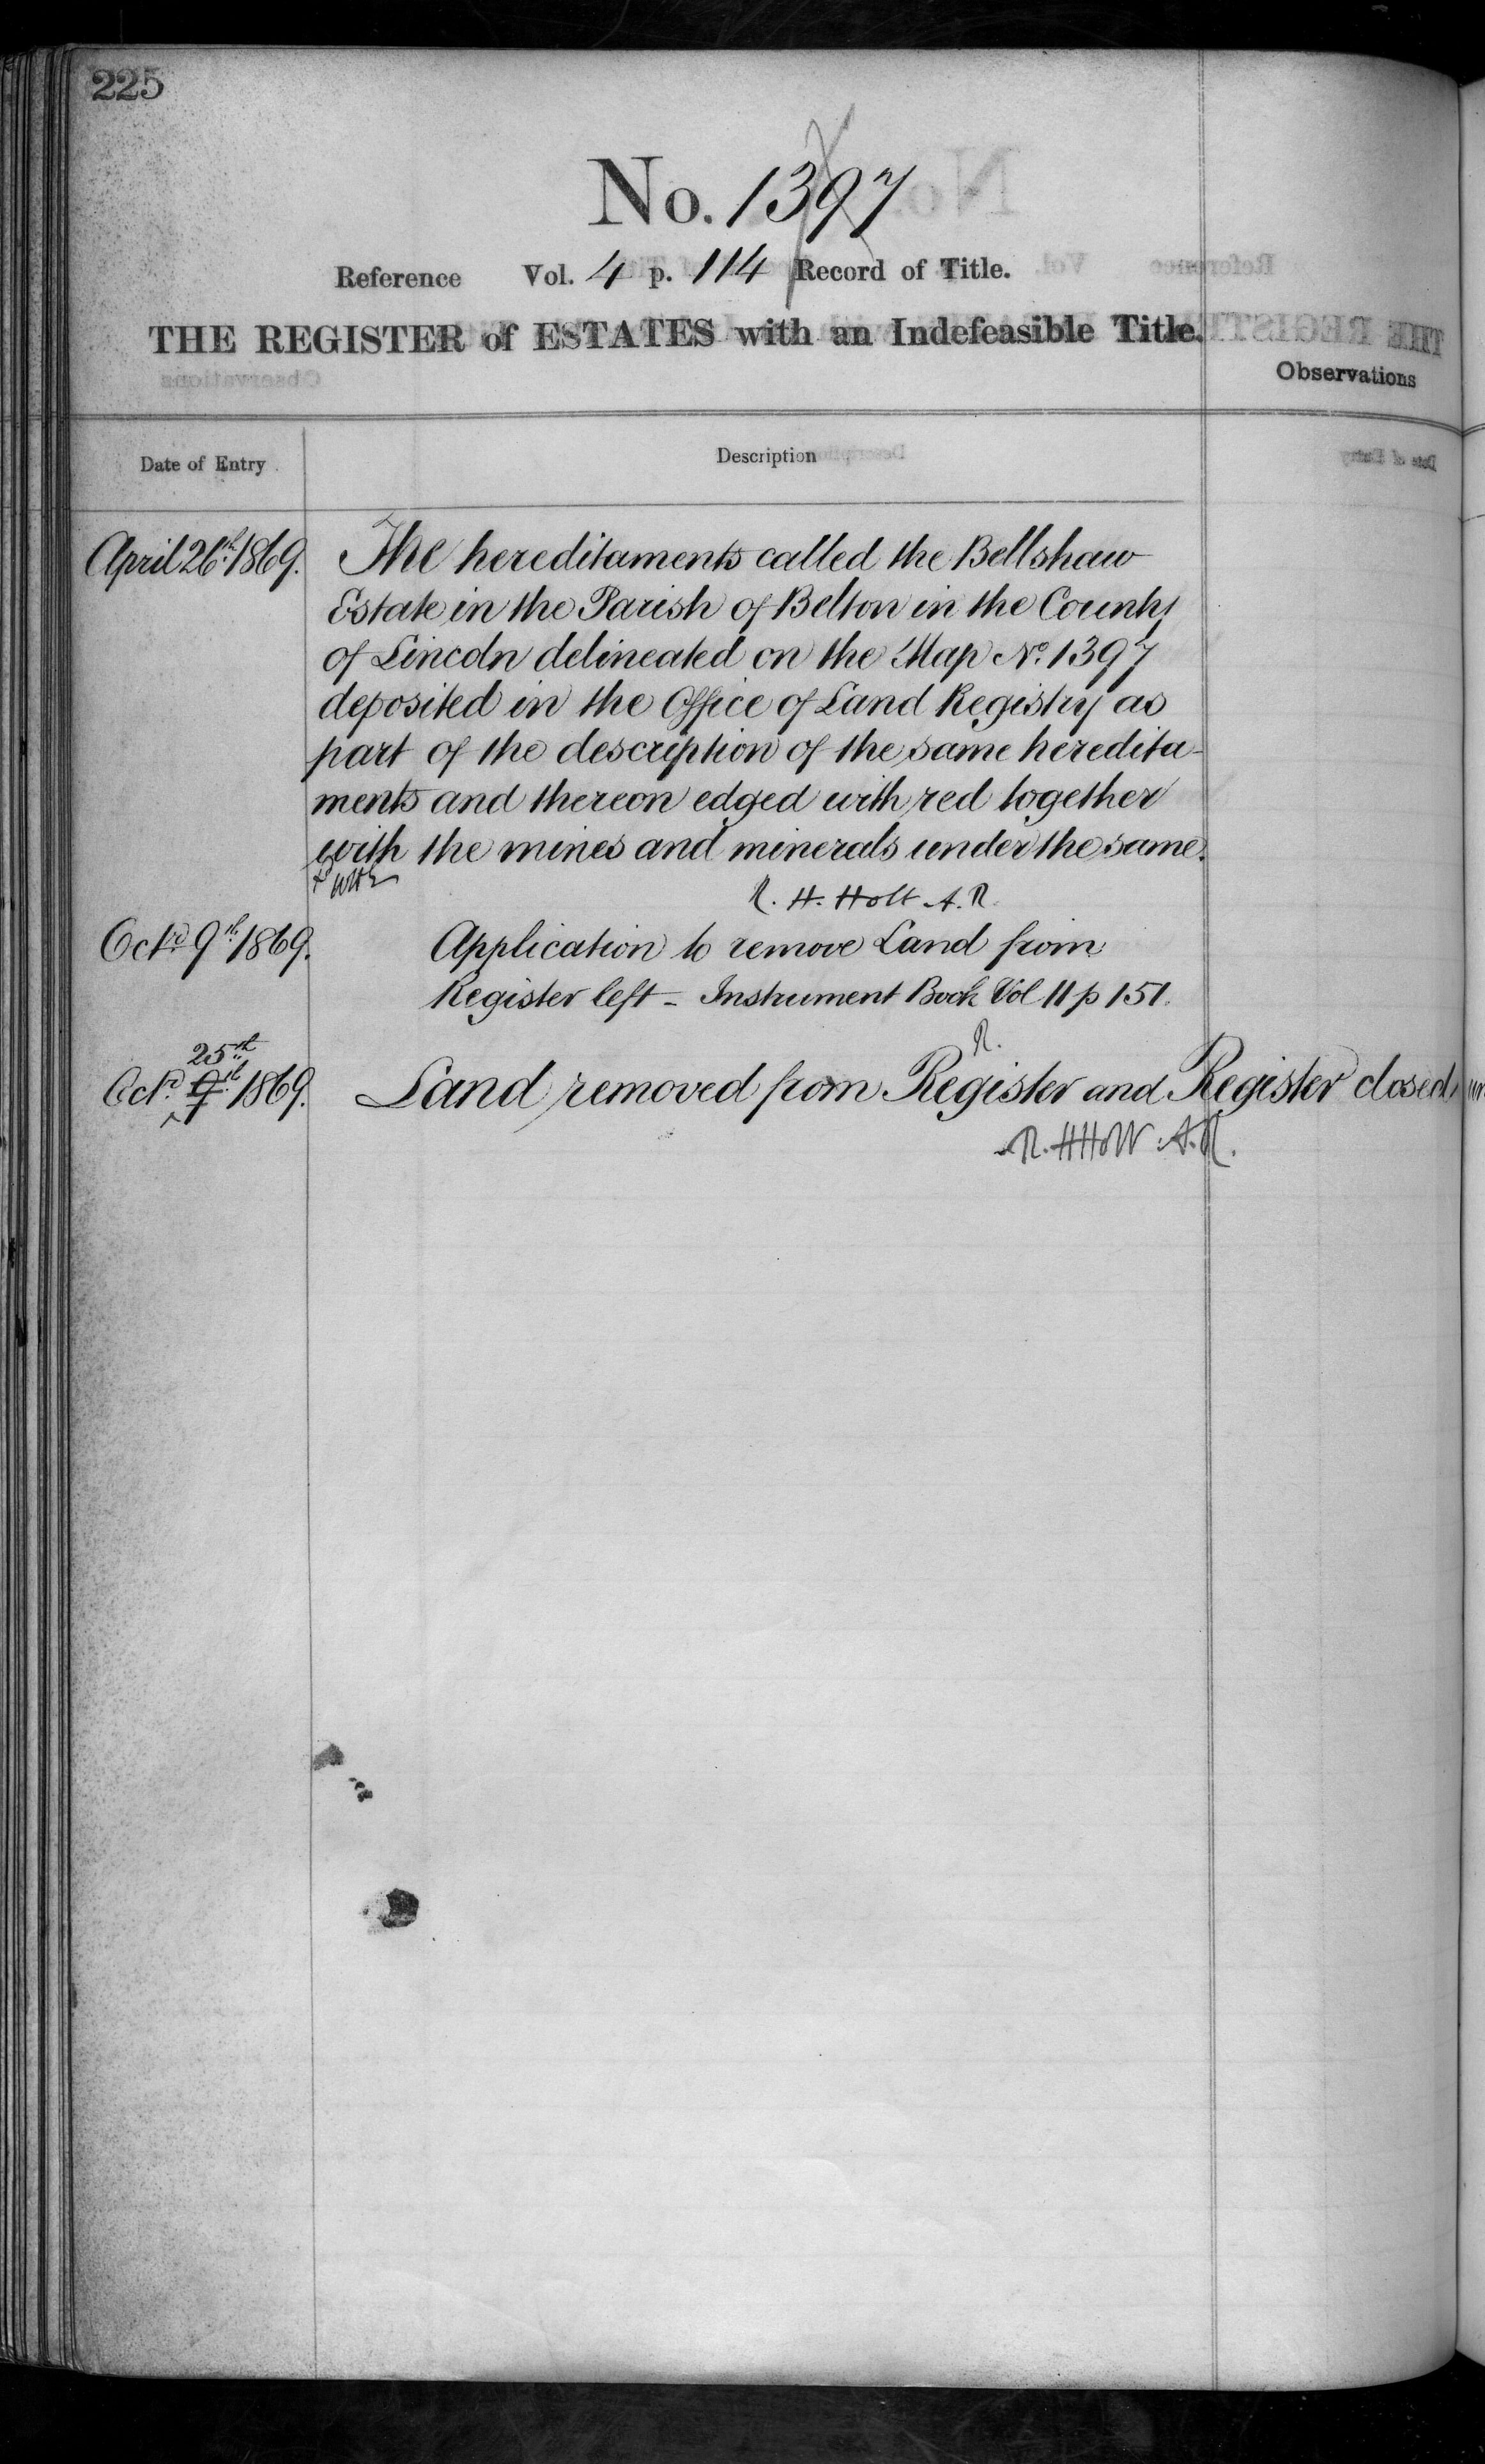 225
No. 1397
Reference Vol. 4 p. 114 Record of Title.
THE REGISTER of ESTATES with an Indefeasible Title.
Observations
Date of Entry
Description
April 26th 1869. The hereditaments called the Bellshaw
Estate in the Parish of Belton in the County
of Lincoln delineated on the Map No. 1397
deposited in the Office of Land Registry as
part of the description of the same heredita-
ments and thereon edged with red together
with the mines and minerals under the same.
R. H. Holt A.R.
Octr. 9th 1869. Application to remove Land from
Register left - Instrument Book Vol 11 p 151.
R.
25th
Octr. 9th 1869. Land removed from Register and Register closed
R. H Holt A.R.